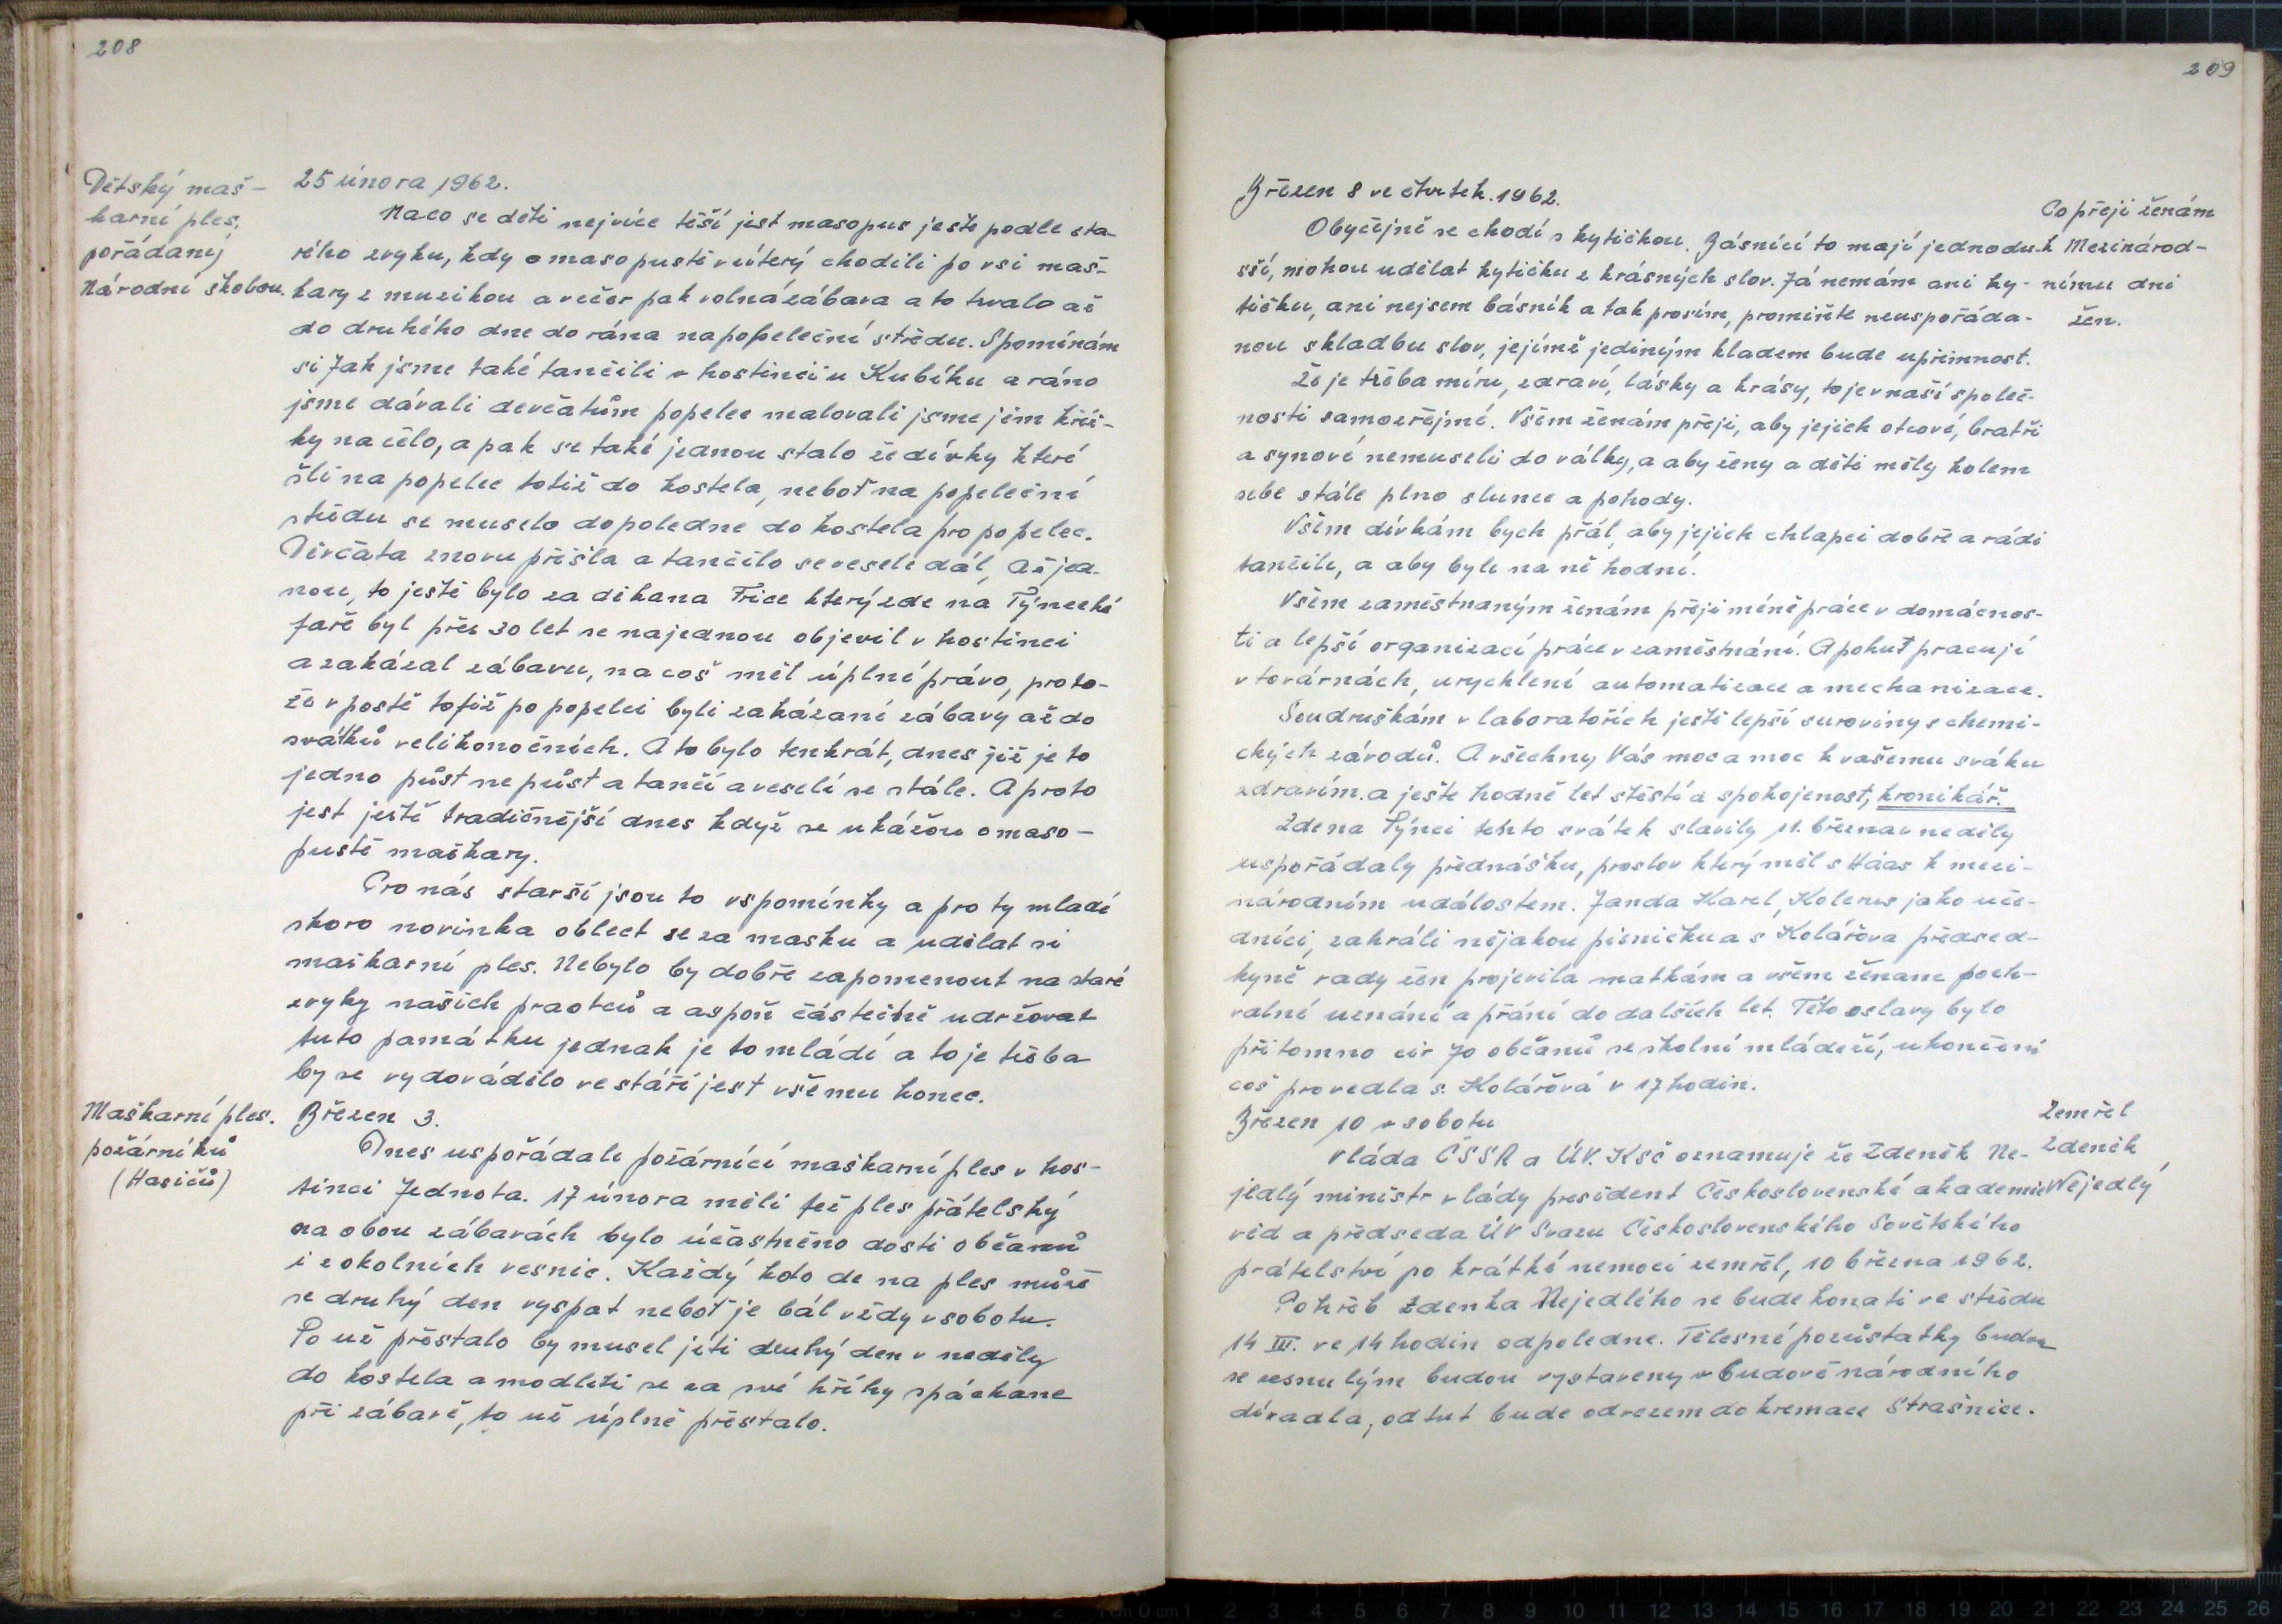 208
Dětský maš-
karní ples,
pořádaný
Národní školou.
25 února 1962.
Naco se děti nejvíce těší jest masopus ještě podle sta-
rého zvyku, kdy o masopusti v úterý chodili po vsi maš-
kary z muzikou a večer pak volná zábava a to trvalo až
do druhého dne do rána na popeleční středu. Spomínám
si jak jsme také tančili v hostinci u Kubíku a ráno
jsme dávali děvčatům popelec malovali jsme jém kříž-
ky na čelo, a pak se také jednou stalo že dívky které
šli na popelec totiž do kostela, neboť na popeleční
středu se muselo dopoledne do kostela pro popelec.
Děvčata znovu přišla a tančilo se vesele dál, až jed-
nou, to ještě bylo za děkana Frice který zde na Týnecké
faře byl přes 30 let se najednou objevil v hostinci
a zakázal zábavu, na což měl úplné právo, proto-
že v postě totiž po popelci byli zakázaní zábavy až do
svátků velikonočních. A to bylo tenkrát, dnes již je to
jedno půst nepůst a tančí a veselí se stále. A proto
jest ještě tradičnější dnes když se ukážou o maso-
pustě maškary.
Pro nás starší jsou to vspomínky a pro ty mladé
skoro novinka oblect se za masku a udělat si
maškarní ples. Nebylo by dobře zapomenout na staré
zvyky našich praotců a aspoň částečně udržovat
tuto památku jednak je to mládí a to je třeba
by se vydovádělo ve stáří jest všemu konec.
Maškarní ples.
požárníků
(Hasičů)
Březen 3.
Dnes uspořádali požárníci maškarní ples v hos-
tinci Jednota. 17 února měli též ples přátelský
na obou zábavách bylo účastněno dosti občanů
i z okolních vesnic. Každý kdo de na ples může
se druhý den vyspat neboť je bál vždy v sobotu.
To už přestalo by musel jíti druhý den v neděly
do kostela a modleti se za své hříhy spáchane
při zábavě, to už úplně přestalo.
209
Březen 8 ve čtvrtek. 1962.
Co přeji ženám
k Mezinárod-
nímu dni
žen.
Obyčejně se chodí s kytičkou. Básníci to mají jednodu-
šší, mohou udělat kytičku z krásných slov. Já nemám ani ky-
tičku, ani nejsem básník a tak prosím, promiňte neuspořáda-
nou skladbu slov, jejímž jediným kladem bude upřímnost.
Že je třeba míru, zdraví, lásky a krásy, to je v naší společ-
nosti samozřejmé. Všem ženám přeji, aby jejich otcové, bratři
a synové nemuseli do války, a aby ženy a děti měly kolem
sebe stále plno slunce a pohody.
Všem dívkám bych přál, aby jejich chlapci dobře a rádi
tančili, a aby byli na ně hodní.
Všem zaměstnaným ženám přeji méně práce v domácnos-
ti a lepší organizací práce v zaměstnání. A pokuť pracují
v továrnách, urychlení automatizace a mechanizace.
Soudruškám v laboratořích ještě lepší suroviny s chemi-
ckých závodů. A všechny Vás moc a moc k vašemu sváku
zdravím. a ješte hodně let stěstí a spokojenost, kronikář.
Zde na Týnci tehto svátek slavily 11. března v neděly
uspořádaly přednášku, proslov který měl s Háas k mezi-
národním událostem. Janda Karel, Kolerus jako uče-
dníci, zahráli nějakou písničku a s Kolářova předsed-
kyně rady žen projevila matkám a všem ženam poch-
valné uznání a přání do dalších let. Této oslavy bylo
přítomno cir 70 občanů se školní mládeží, ukončení
což provedla s. Kolářová v 17 hodin.
Březen 10 v sobotu
Zemřel
Zdeněk
Nejedlý
Vláda ČSSR a ÚV. Ksč oznamuje že Zdeněk Ne-
jedlý ministr vlády president Československé akademie
věd a předseda ÚV Svazu Československého Sovětského
prátelství po krátké nemoci zemřel, 10 března 1962.
Pohřeb Zdenka Nejedlého se bude konati ve středu
14 III. ve 14 hodin odpoledne. Tělesné pozůstatky budou
se zesnulým budou vystaveny v budově národního
divadla, odtut bude odvezem do kremace Strašnice.